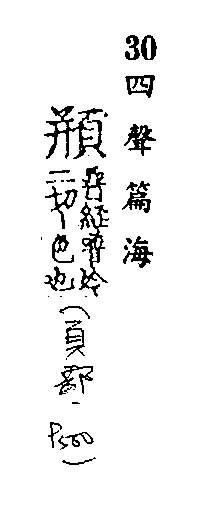 30四聲篇海
頩
普經普冷
二切色也
(頁部.P500)